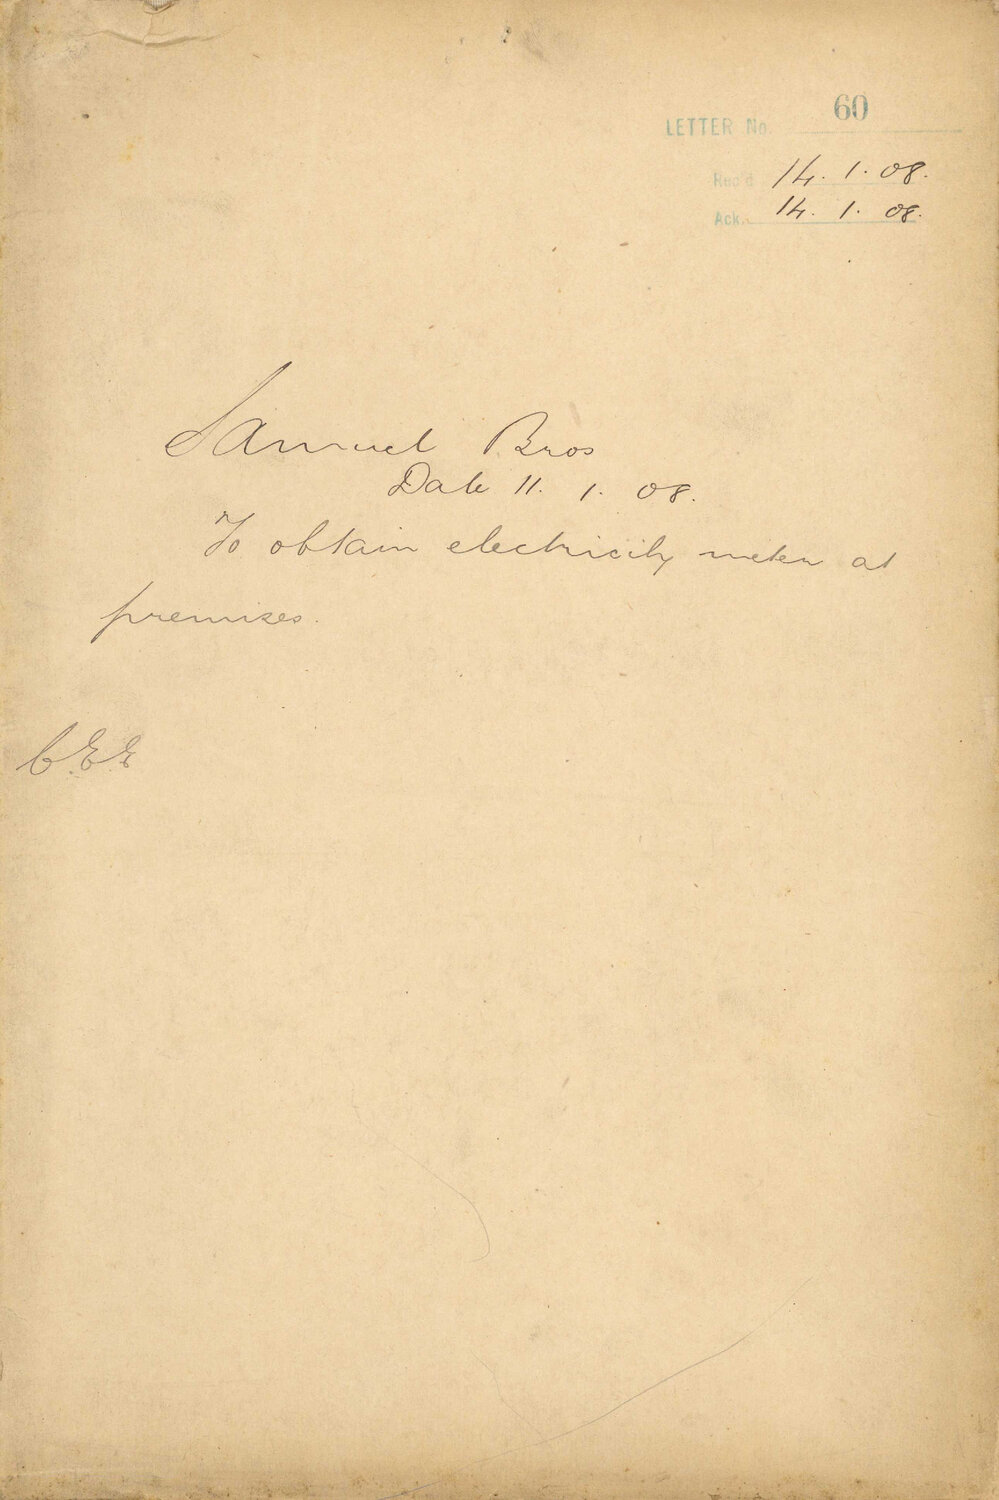 LETTER No. 60
Rec'd 14. 1. 08.
Ack. 14. 1. 08.
Samuel Bros
Date 11. 1. 08.
To obtain electricity meter at
premises.
C.E.E